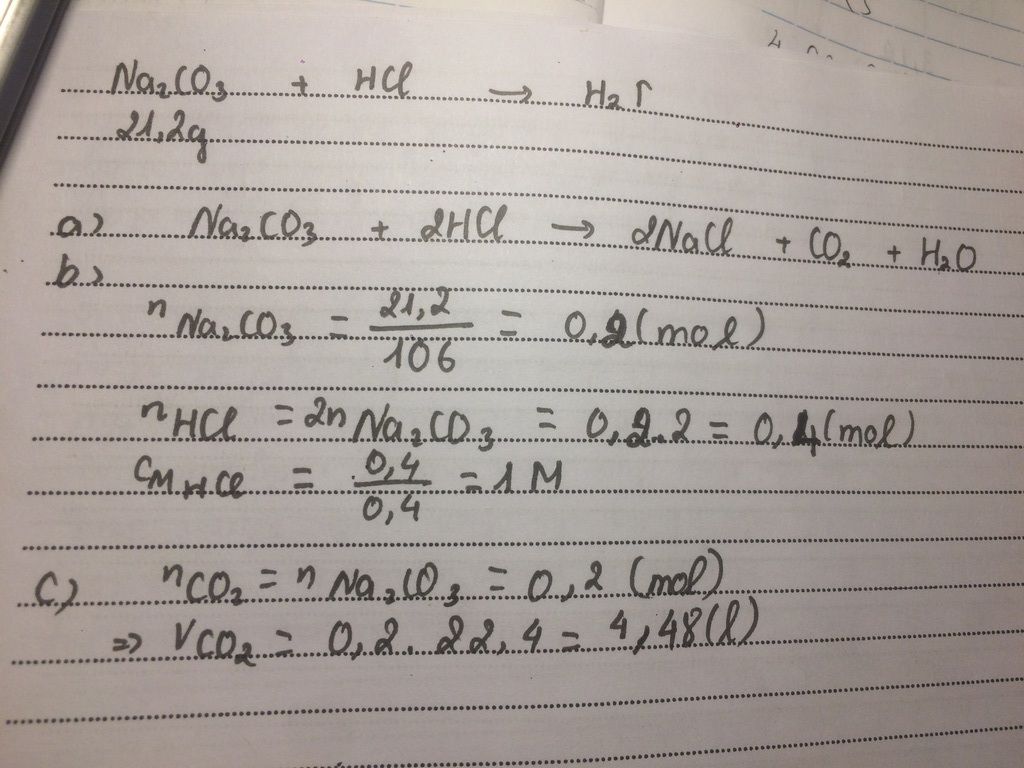 Na₂CO₃ + HCl → H₂↑
21,2g
a) Na₂CO₃ + 2HCl → 2NaCl + CO₂ + H₂O
b)
nNa₂CO₃ = 21,2/106 = 0,2(mol)
nHCl = 2nNa₂CO₃ = 0,2.2 = 0,4(mol)
CMHCl = 0,4/0,4 = 1M
c) nCO₂ = nNa₂CO₃ = 0,2 (mol)
=> VCO₂ = 0,2.22,4 = 4,48(l)